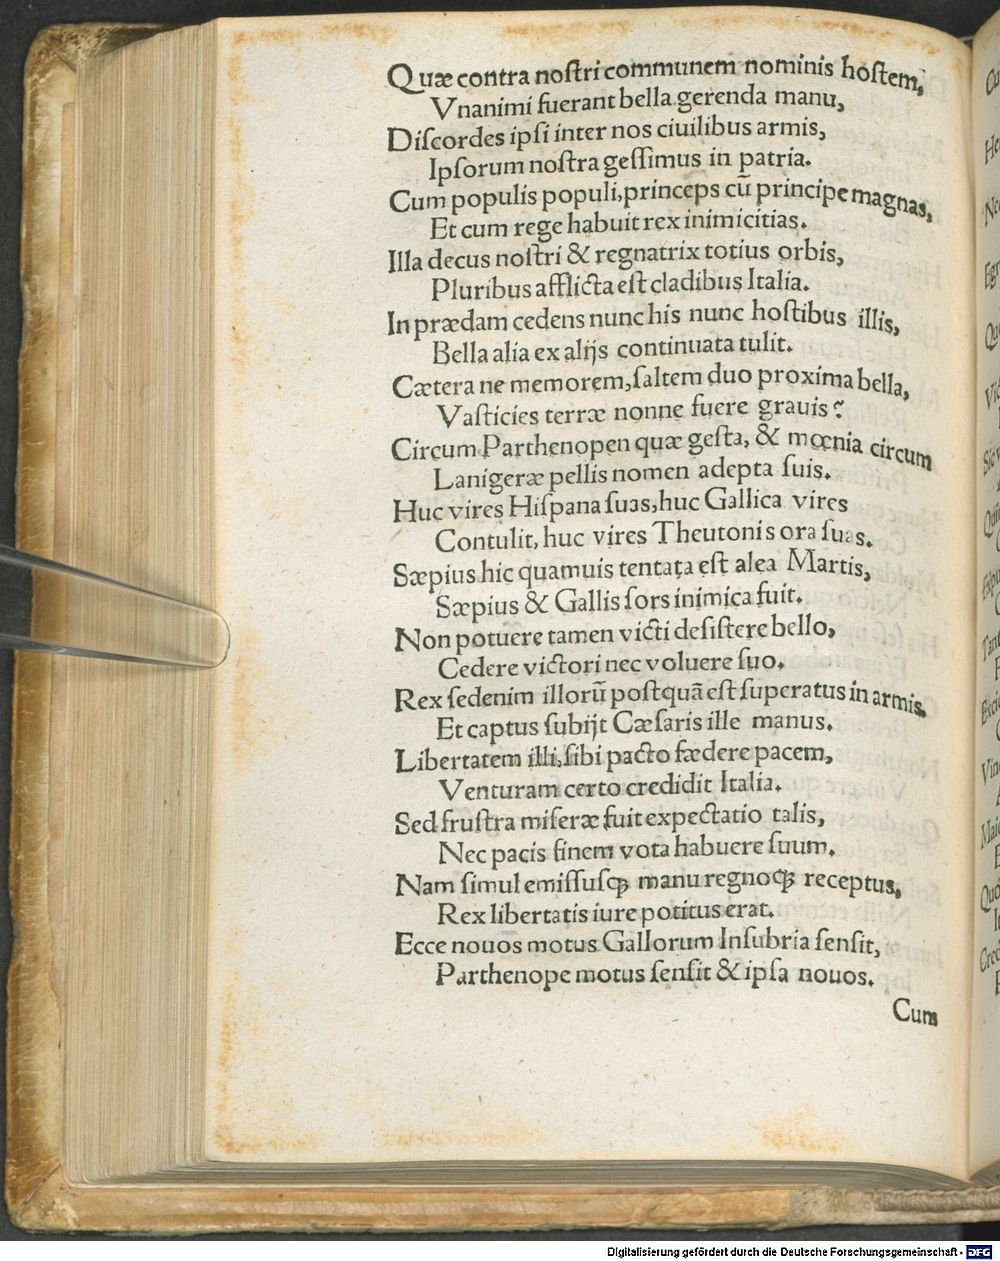 Quæ contra noſtri communem nominis hoſtem,
Vnanimi fuerant bella gerenda manu,
Diſcordes ipſi inter nos ciuilibus armis,
Ipſorum noſtra geſſimus in patria.
Cum populis populi, princeps cū principe magnas,
Et cum rege habuit rex inimicitias.
Illa decus noſtri & regnatrix totius orbis,
Pluribus afflicta eſt cladibus Italia.
In prædam cedens nunc his nunc hoſtibus illis,
Bella alia ex alijs continuata tulit.
Cætera ne memorem, ſaltem duo proxima bella,
Vaſticies terræ nonne fuere grauis?
Circum Parthenopen quæ geſta, & mœnia circum
Lanigeræ pellis nomen adepta ſuis.
Huc vires Hiſpana ſuas, huc Gallica vires
Contulit, huc vires Theutonis ora ſuas.
Sæpius hic quamuis tentata eſt alea Martis,
Sæpius & Gallis ſors inimica fuit.
Non potuere tamen victi deſiſtere bello,
Cedere victori nec voluere ſuo.
Rex ſed enim illorū poſtquā eſt ſuperatus in armis.
Et captus ſubijt Cæſaris ille manus.
Libertatem illi, ſibi pacto fædere pacem,
Venturam certo credidit Italia.
Sed fruſtra miſeræ fuit expectatio talis,
Nec pacis finem vota habuere ſuum.
Nam ſimul emiſſuſꝗ manu regnoꝗ receptus,
Rex libertatis iure potitus erat.
Ecce nouos motus Gallorum Inſubria ſenſit,
Parthenope motus ſenſit & ipſa nouos.
Cum
Digitalisierung gefördert durch die Deutsche Forschungsgemeinschaft - DFG